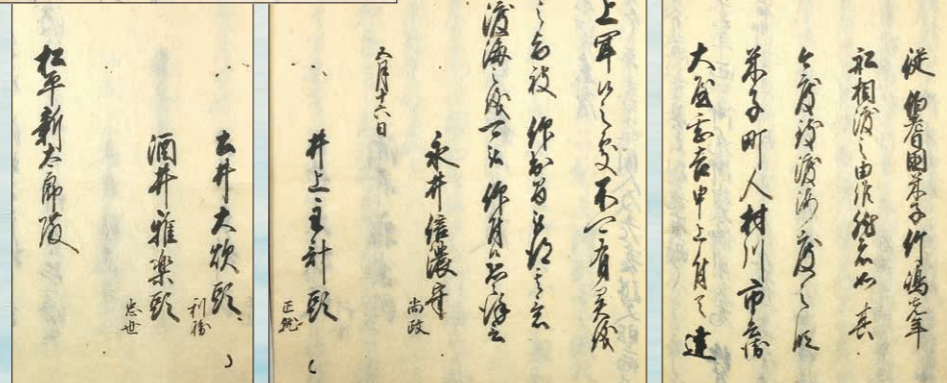 従伯耆国米子竹嶋先年
船相渡之由候然者如其
今度致渡海度之段
米子町人村川市兵衛
大屋甚吉申上付而達
上聞候之処不可有異儀
之旨被仰出候間被得其意
渡海之儀可被仰付候恐々謹言
五月十六日
永井信濃守
尚政
井上主計頭
正就
土井大炊頭
利勝
酒井雅楽頭
忠世
松平新太郎殿